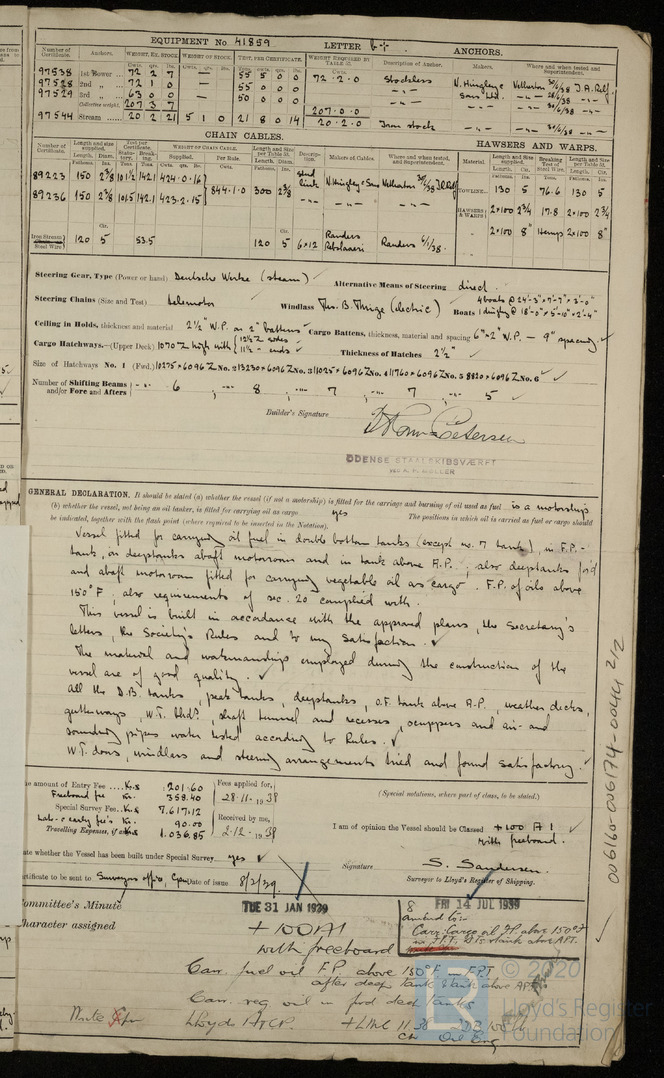 EQUIPMENT No 41859 LETTER b+ ANCHORS.
Number of Certificate. Anchors. WEIGHT, EX. STOCK. WEIGHT OF STOCK. TEST, PER CERTIFICATE. WEIGHT REQUIRED BY TABLE 31. Description of Anchor. Makers. Where and when tested and Superintendent.
97538 1st Bower ... 72 2 7 — 55 5 0 0 72.2.0 Stockless N. Hingley & Sons Ltd. Netherton 30/6/38
97528 2nd „ ... 72 1 0 — 55 0 0 0
97529 3rd „ ... 63 0 0 — 50 0 0 0
Collective weight. 207 3 7 207.0.0
97544 Stream ... 20 2 21 5 1 0 21 8 0 14 20.2.0 Iron stock 30/6/38
CHAIN CABLES. HAWSERS AND WARPS.
Number of Certificate. Length and size supplied. Test per Certificate. WEIGHT OF CHAIN CABLE. Length and Size per Table 31. Description. Makers of Cables. Where and when tested, and Superintendent. Material. Length and Size supplied. Breaking Test of Steel Wire. Length and Size per Table 31.
89223 150 2 3/8 101 1/2 142.1 424.0.16 844.1.0 300 2 3/8 Stud Link N. Hingley & Sons Netherton TOWLINE.. 130 5 76.6 130 5
89236 150 2 3/8 101.5 142.1 423.2.15 HAWSERS & WARPS 2x100 2 3/4 17.8 2x100 2 3/4
2x100 8" Hemp 2x100 8"
Iron Stream or Steel Wire 120 5 53.5 120 5 6x12 Randers Rebslaaeri Randers 6/1/38
Steering Gear, Type (Power or hand) Deutsche Werke (steam) Alternative Means of Steering direct.
Steering Chains (Size and Test) telemotor Windlass Thos. B. Thrige (electric) Boats 4 boats @ 24'-3"x7'-7"x3'-0"
1 dinghy @ 18'-0"x5'-10"x2'-4"
Ceiling in Holds, thickness and material 2 1/2" W.P. on 2" battens Cargo Battens, thickness, material and spacing 6"x2" W.P. — 9" spacing.
Cargo Hatchways.—(Upper Deck) 1070 Z high with 12 1/2 Z sides 11 1/2 - ends Thickness of Hatches 2 1/2"
Size of Hatchways No. 1 (Fwd.) 10275x6096 Z No. 2 13230x6096 Z No. 3 11025x6096 Z No. 4 11760x6096 Z No. 5 8820x6096 Z No. 6
Number of Shifting Beams and/or Fore and Afters 6 8 7 7 5
Builder's Signature
ODENSE STAALSKIBSVÆRFT
VED A. P. MØLLER
GENERAL DECLARATION. It should be stated (a) whether the vessel (if not a motorship) is fitted for the carriage and burning of oil used as fuel is a motorship
(b) whether the vessel, not being an oil tanker, is fitted for carrying oil as cargo yes The positions in which oil is carried as fuel or cargo should
be indicated, together with the flash point (where required to be inserted in the Notation).
Vessel fitted for carrying oil fuel in double bottom tanks (except no. 7 tank), in F.P.-
tank, in deeptanks abaft motorroom and in tank above A.P.; also deeptanks ford
and abaft motorroom fitted for carrying vegetable oil as cargo. F.P. of oils above
150°F; also requirements of sec. 20 complied with.
This vessel is built in accordance with the approved plans, the Secretary's
letters, the Society's Rules and to my satisfaction.
The material and workmanship employed during the construction of the
vessel are of good quality.
All the D.B. tanks, peak tanks, deeptanks, O.F. tank above A.P., weather decks,
gutterways, W.T. bhds, shaft tunnel and recesses, scuppers and air- and
sounding pipes water tested according to Rules.
W.T. doors, windlass and steering arrangements tried and found satisfactory.
The amount of Entry Fee .... Kr. 201.60 Fees applied for,
Freeboard fee Kr. 358.40 28-11-1938
Special Survey Fee... Kr. 7.617.12 Received by me,
90.00 2-12-1938
Travelling Expenses, if any Kr. 1.036.85
(Special notations, where part of class, to be stated.)
I am of opinion the Vessel should be Classed +100 A 1
with freeboard.
State whether the Vessel has been built under Special Survey yes
Certificate to be sent to Surveyors office, Cpn Date of issue 8/2/39.
Signature S. Sandersen.
Surveyor to Lloyd's Register of Shipping.
Committee's Minute TUE 31 JAN 1939
Character assigned +100A1
with freeboard
FRI 14 JUL 1939
amended to:-
Carr. Cargo oil F.P. above 150°F
in F.P.T. D.Ts & tank above A.P.T.
Carr. fuel oil F.P. above 150°F in F.P.T
after deep tank & tank above A.P.T
Carr. veg oil in fwd deep tanks
Write Cpn Lloyds A&CP. +LMC 11.38
Oil Eng
006160-006174-0044 2/2
© 2020
Lloyd's Register
Foundation